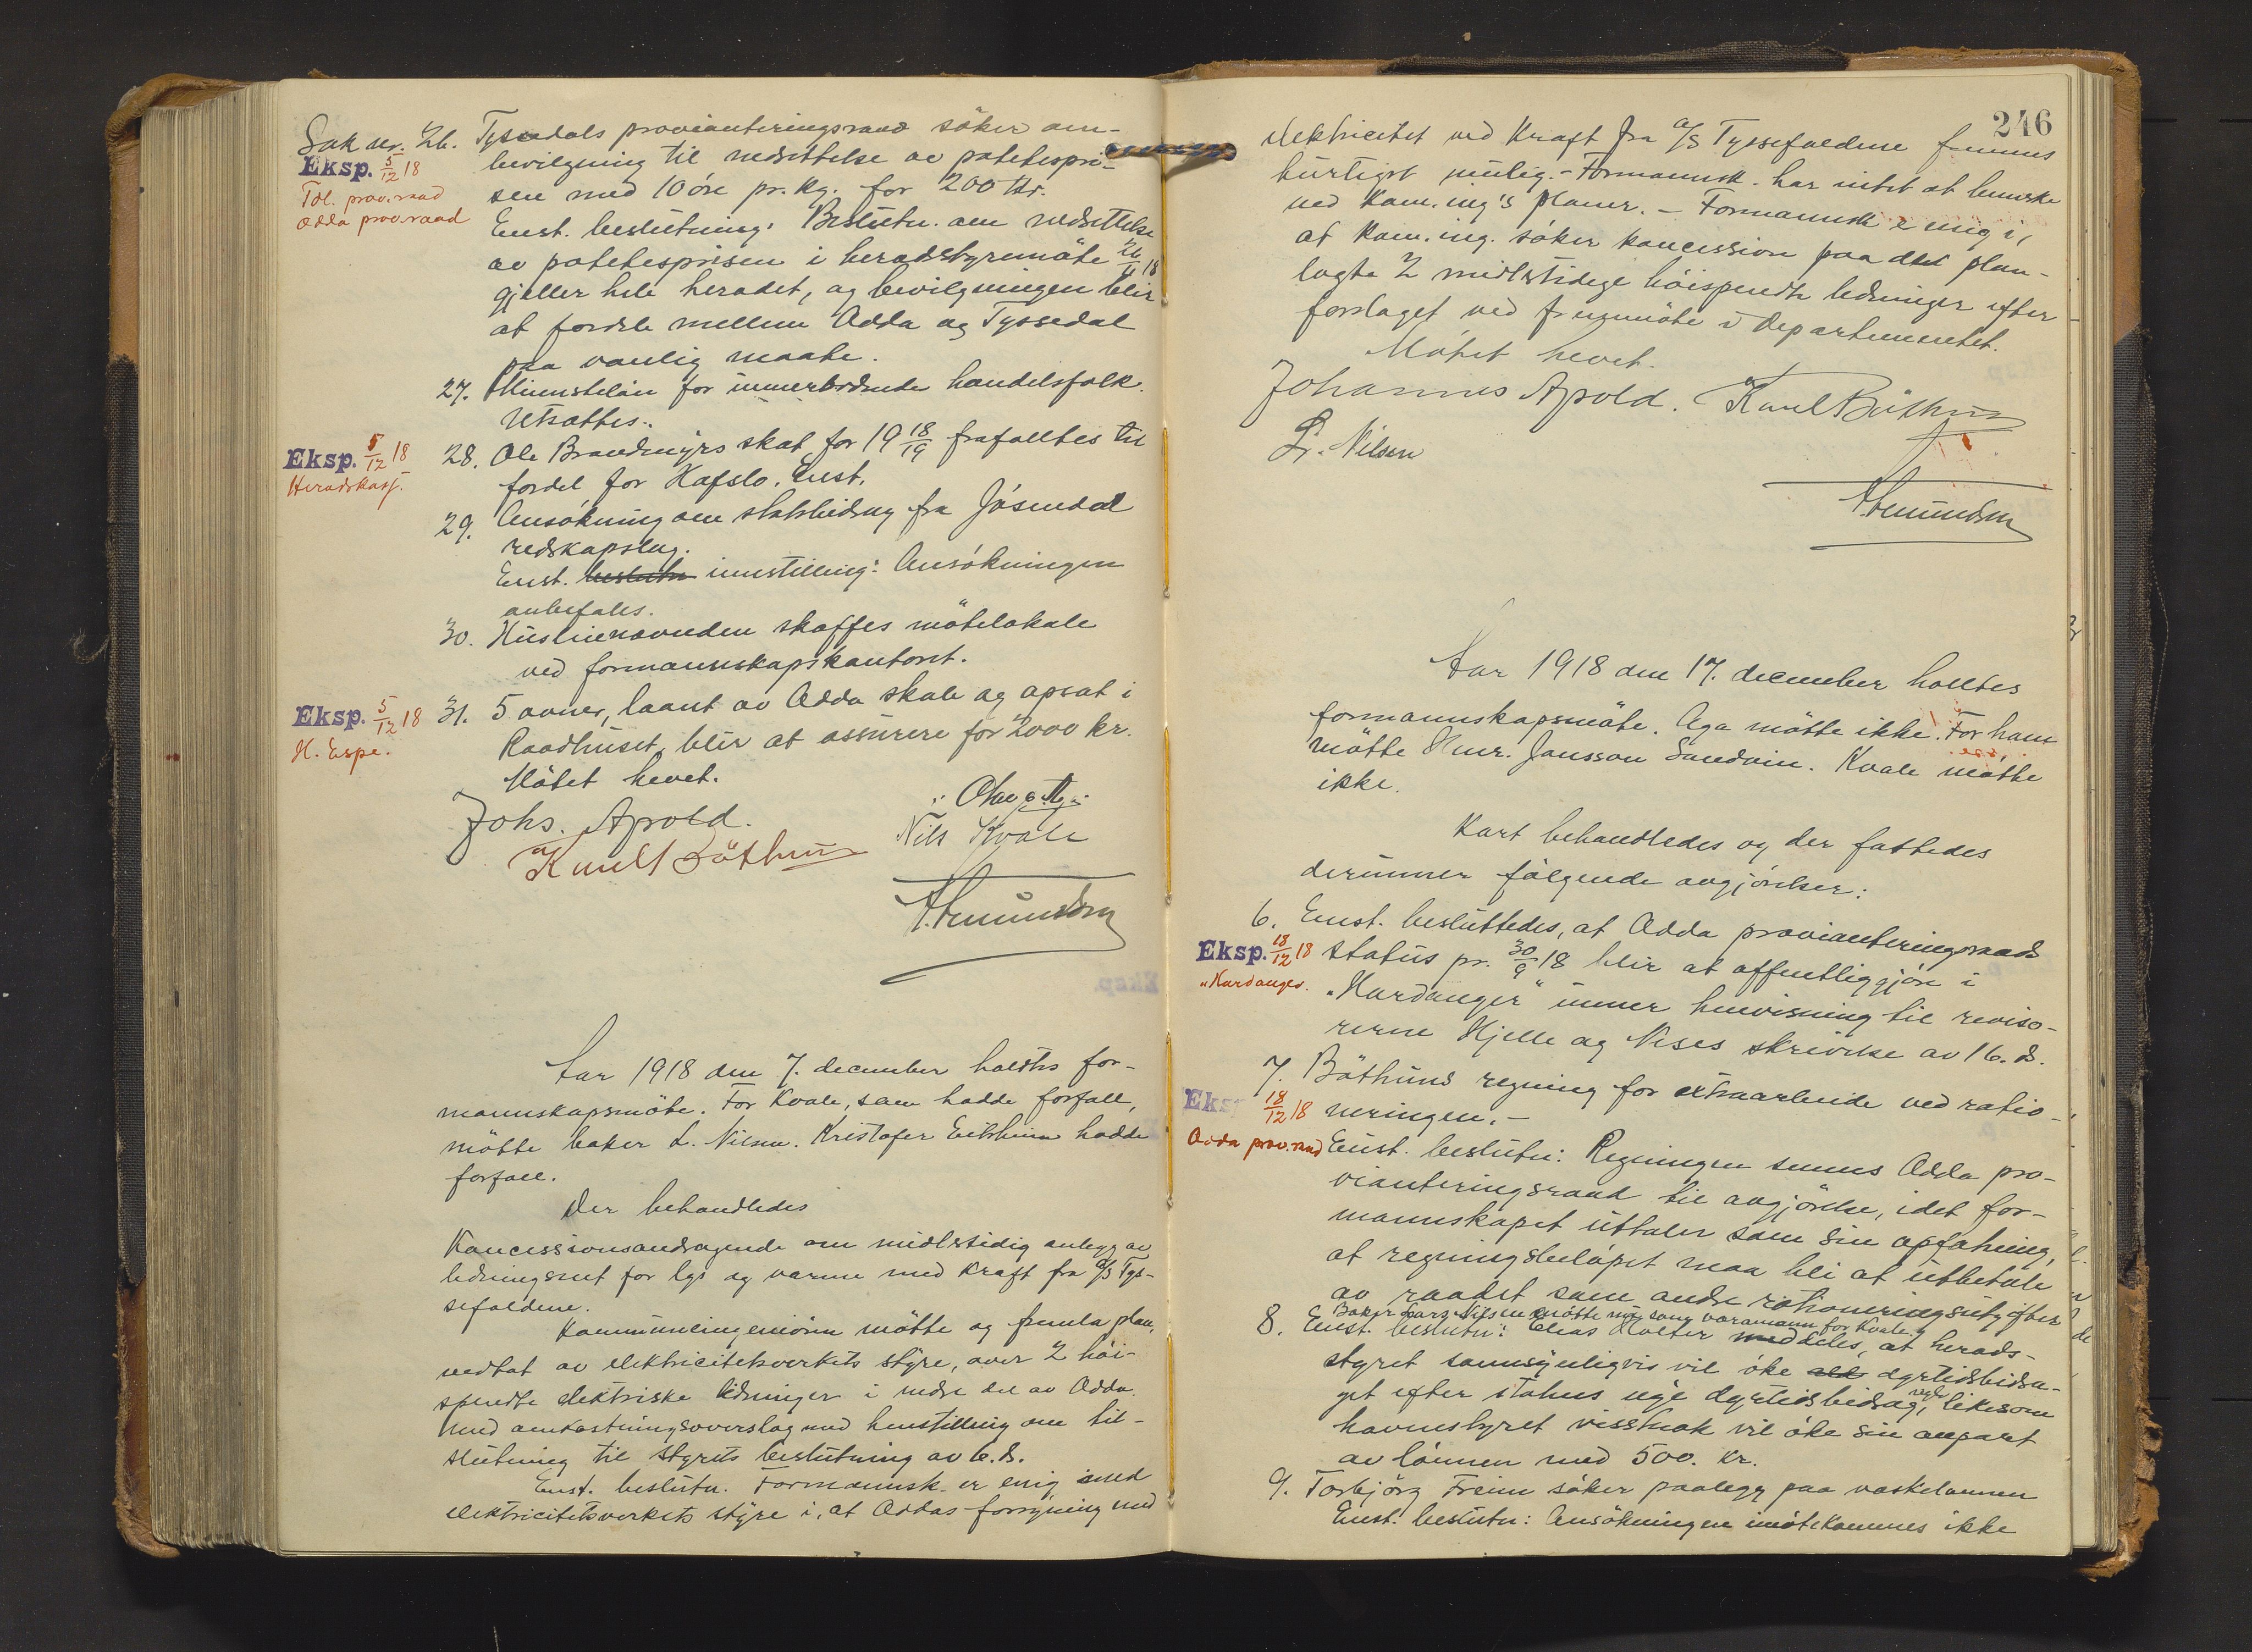 Sak nr. 26. Tyssedals provianteringsraad söker om
Eksp. 5/12 18
Tdl. prov.raad
Odda prov.raad
bevilgning til nedsettelse av potetespri-
sen med 10 öre pr. kg. for 200 tdr.
Enst. beslutning: Beslutn. om nedsettelse
av potetesprisen i heradsstyremöte 26/11 18
gjeller hele heradet, og bevilgningen blir
at fordele mellem Odda og Tyssedal
paa vanlig maate.
27. Minstelön for umerbodende handelsfolk.
Utsattes.
Eksp. 5/12 18
Heradskass.
28. Ole Brandmyrs skat for 19 18/19 frafalltes til
fordel for Hafslo. Enst.
29. Ansökning om statsbidrag fra Jösendal
redskapslag.
Enst. beslutn innstilling: Ansökningen
anbefales.
30. Huslienevnden skaffes mötelokale
ved formannskapskontoret.
Eksp. 5/12 18
H. Espe.
31. 5 ovner, laant av Odda skole og opsat i
Raadhuset, blir at assurere for 2000 kr.
Mötet hevet.
Johs. Apold.
Olav Aga
Nils Kvale
Knut Böthun
A. Amundsen
Aar 1918 den 7. december holdtes for-
mannskapsmöte. For Kvale, som hadde forfall,
mötte baker L. Nilsen. Kristofer Eitrheim hadde
forfall.
Der behandledes
Koncessionsandragende om midlertidig anlegg av
ledningsnet for lys og varme med kraft fra A/S Tys-
sefaldene.
Kommuneingeniören mötte og fremla plan,
vedtat av elektricitetsverkets styre, over 2 höi-
spendte elektriske ledninger i nedre del av Odda
med omkostningsoverslag med henstilling om til-
slutning til styrets beslutning av 6. ds.
Enst. beslutn. Formannsk. er enig med
elektricitetsverkets styre i, at Oddas forsyning med
246
elektricitet ved Kraft fra A/S Tyssefaldene fremmes
hurtigst mulig. - Formannsk. har intet at bemerke
ved kom.ing's planer. - Formannsk. er enig i,
at kom.ing. söker koncession paa det plan-
lagte 2 midlertidige höispendte ledninger efter
forslaget ved fremmöte i Departementet.
Mötet hevet.
Johannes Apold. Knut Böthun
L. Nilsen
A. Amundsen
Aar 1918 den 17. december holltes
formannskapsmöte. Aga mötte ikke. For ham
mötte Hmr. Jansson Sandvin. Kvale mötte
ikke.
Kort behandledes og der fattedes
derunner fölgende avgjörelser:
6. Enst. besluttedes, at Odda provianteringsraads
Eksp. 18/12 18
"Hardanger.
status pr. 30/9 18 blir at offentliggjöre i
"Hardanger" unner henvisning til reviso-
rerne Hjelle og Nises skrivelse av 16. ds.
7. Böthuns regning for extraarbeide ved ratio-
Eksp 18/12 18
Odda prov.raad
neringen. -
Enst. beslutn: Regningen sennes Odda pro-
vianteringsraad til avgjörelse, idet for-
mannskapet uttaler som sin opfatning,
at regningsbelöpet maa bli at utbetale
av raadet som andre rationeringsutgifter
Baker Lars Nilsen mötte nu som varamann for Kvale.
8. Enst. beslutn: Elias Holter meddeles, at herads-
styret sannsynligvis vil öke dyrtidsbidra-
get efter statens nye dyrtidsbidrag, regler likesom
havnestyret visstnok vil öke sin anpart
av lönnen med 500. kr.
9. Torbjörg Freim söker paalegg paa vaskelønnen
Enst. beslutn: Ansökningen imötekommes ikke